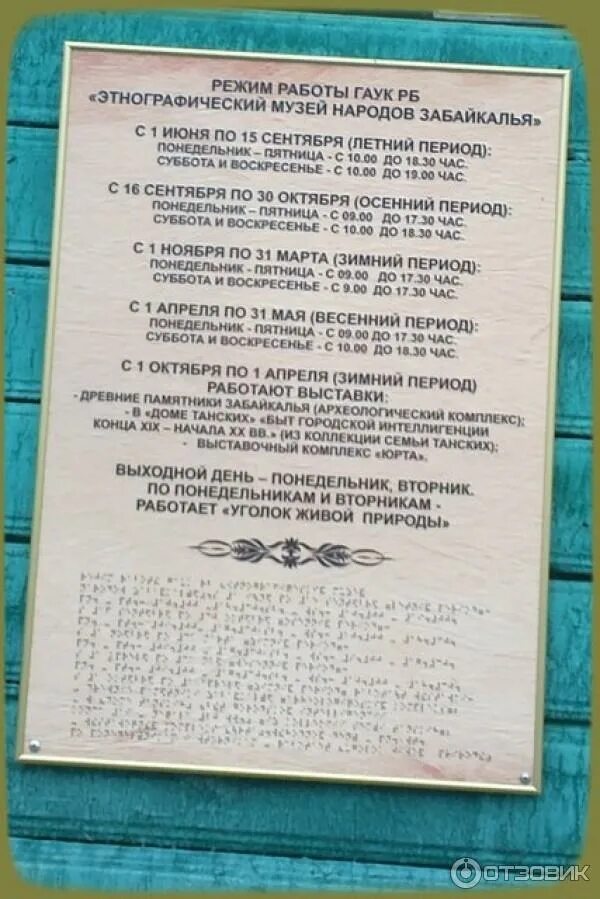 РЕЖИМ РАБОТЫ ГАУК РБ
«ЭТНОГРАФИЧЕСКИЙ МУЗЕЙ НАРОДОВ ЗАБАЙКАЛЬЯ»
С 1 ИЮНЯ ПО 15 СЕНТЯБРЯ (ЛЕТНИЙ ПЕРИОД):
ПОНЕДЕЛЬНИК – ПЯТНИЦА - С 10.00 ДО 18.30 ЧАС.
СУББОТА И ВОСКРЕСЕНЬЕ - С 10.00 ДО 19.00 ЧАС.
С 16 СЕНТЯБРЯ ПО 30 ОКТЯБРЯ (ОСЕННИЙ ПЕРИОД):
ПОНЕДЕЛЬНИК – ПЯТНИЦА - С 09.00 ДО 17.30 ЧАС.
СУББОТА И ВОСКРЕСЕНЬЕ - С 10.00 ДО 18.30 ЧАС.
С 1 НОЯБРЯ ПО 31 МАРТА (ЗИМНИЙ ПЕРИОД):
ПОНЕДЕЛЬНИК - ПЯТНИЦА - С 09.00 ДО 17.30 ЧАС.
СУББОТА И ВОСКРЕСЕНЬЕ - С 9.00 ДО 17.30 ЧАС.
С 1 АПРЕЛЯ ПО 31 МАЯ (ВЕСЕННИЙ ПЕРИОД):
ПОНЕДЕЛЬНИК - ПЯТНИЦА - С 09.00 ДО 17.30 ЧАС.
СУББОТА И ВОСКРЕСЕНЬЕ - С 10.00 ДО 18.30 ЧАС.
С 1 ОКТЯБРЯ ПО 1 АПРЕЛЯ (ЗИМНИЙ ПЕРИОД)
РАБОТАЮТ ВЫСТАВКИ:
- ДРЕВНИЕ ПАМЯТНИКИ ЗАБАЙКАЛЬЯ (АРХЕОЛОГИЧЕСКИЙ КОМПЛЕКС);
- В «ДОМЕ ТАНСКИХ» «БЫТ ГОРОДСКОЙ ИНТЕЛЛИГЕНЦИИ
КОНЦА XIX – НАЧАЛА XX ВВ.» (ИЗ КОЛЛЕКЦИИ СЕМЬИ ТАНСКИХ);
- ВЫСТАВОЧНЫЙ КОМПЛЕКС «ЮРТА».
ВЫХОДНОЙ ДЕНЬ – ПОНЕДЕЛЬНИК, ВТОРНИК.
ПО ПОНЕДЕЛЬНИКАМ И ВТОРНИКАМ -
РАБОТАЕТ «УГОЛОК ЖИВОЙ ПРИРОДЫ»
ОТЗОВИК